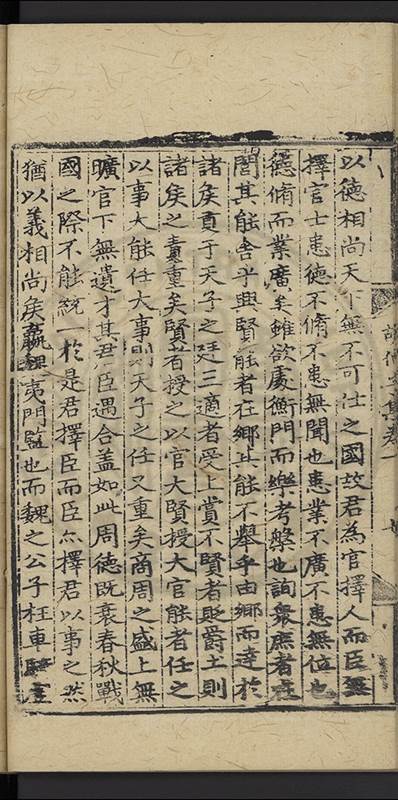 以德相尚天下無不可仕之國故君為官擇人而臣無
擇官士患德不脩不患無聞也患業不廣不患無位也
德脩而業廣矣雖欲處衡門而樂考槃也詢衆庶者在
閭其能舍乎興賢能者在鄉其能不舉乎由鄉而達於
諸矦貢于天子之廷三適者受上賞不賢者貶爵土則
諸矦之責重矣賢者授之以官大賢授大官能者任之
以事大能任大事則天子之任又重矣商周之盛上無
曠官下無遺才其君臣遇合盖如此周德旣衰春秋戰
國之際不能統一於是君擇臣而臣亦擇君以事之然
猶以義相尚矦嬴夷門監也而魏之公子枉車
文集卷一